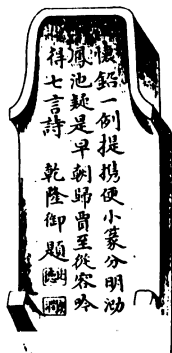 懷鉛一例提携便小篆分明泐
鳳池疑是早朝歸賈至從容吟
得七言詩 乾隆御題